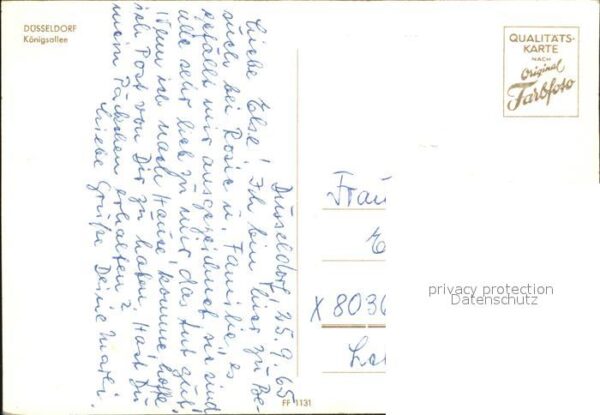 DÜSSELDORF
Königsallee
QUALITÄTS-
KARTE
NACH
Original
Farbfoto
Düsseldorf, 25.9.65
Liebe Else! Ich bin hier zu Be-
such bei Rosie u. Familie, es
gefällt mir ausgezeichnet sie sind
alle sehr lieb zu mir das tut gut!
Wenn ich nach Hause komme hoffe
ich Post von Dir zu haben. Hast Du
mein Päckchen erhalten?
Liebe Grüße Deine
Frau
E
X 8036
FF 1131
privacy protection
Datenschutz